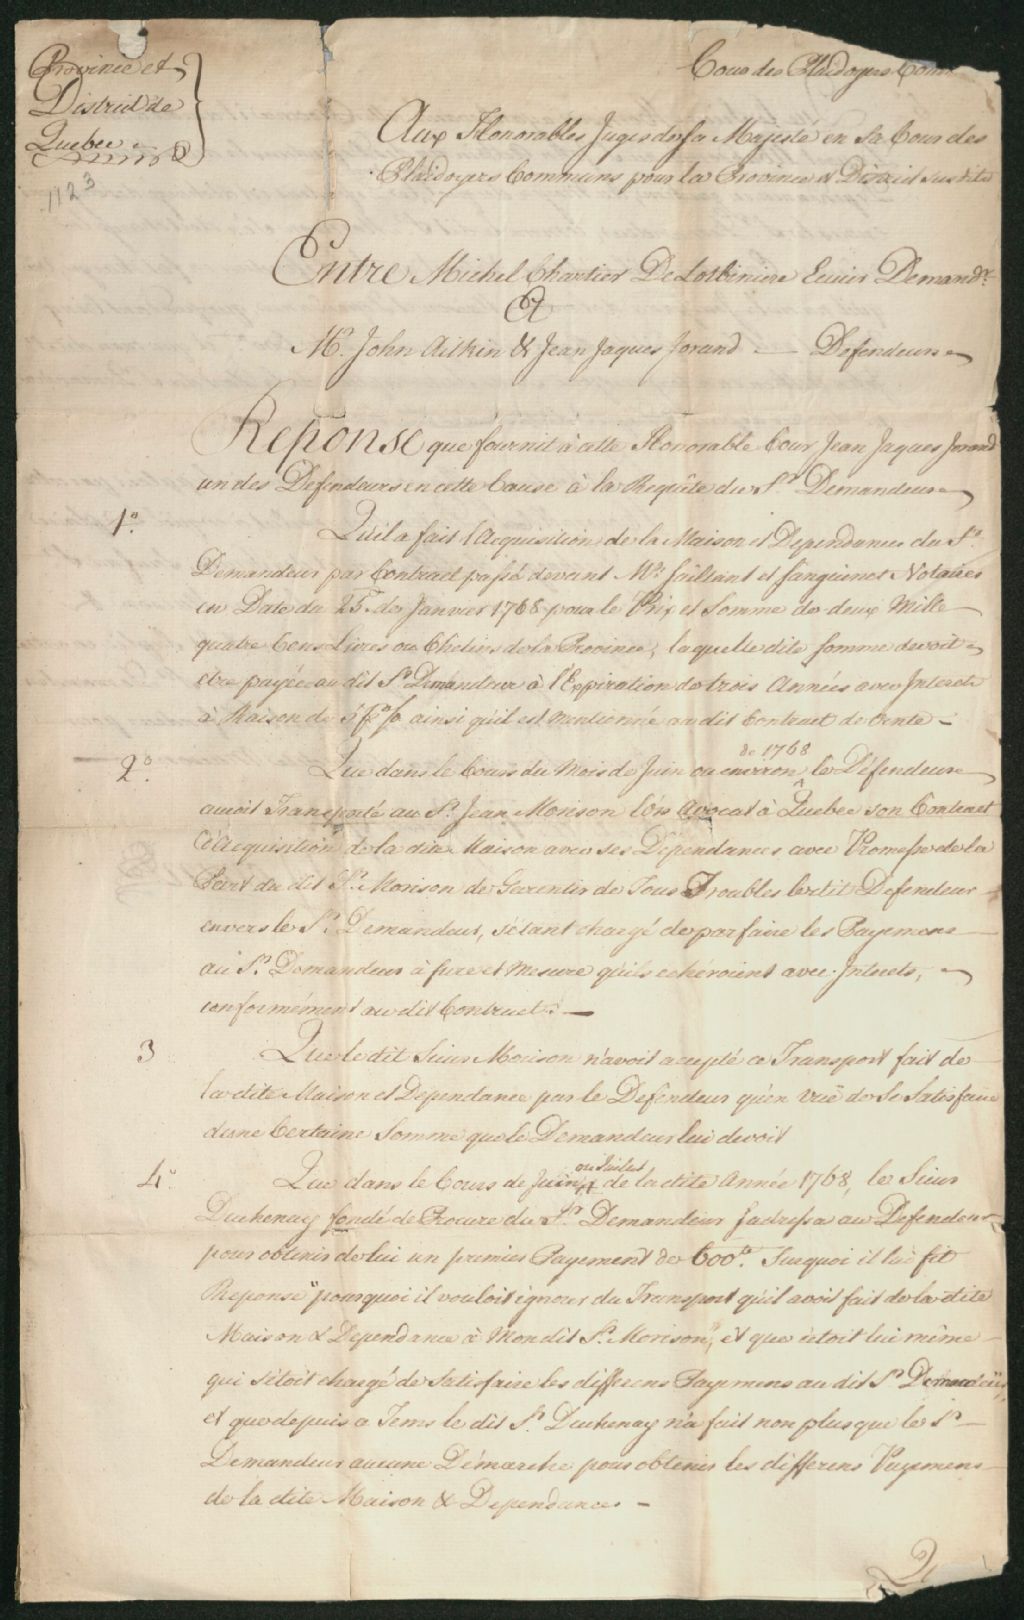 Province et
District de
Quebec
1123
Cour des Plaidoyers Com
Aux Honorables Juges de sa Majesté en Sa Cour des
Plaidoyers Communs pour la Province & District susdits
Entre Michel Chartier De Lotbiniere Ecuier Demandr.
Et
Mrs. John Aitkin & Jean Jaques Jorand — Defendeurs
Reponse que fournit à cette Honorable Cour Jean Jaques Jorand
un des Defendeurs en cette Cause à la Requête du Sr. Demandeur
1o. Qu'il a fait l'Acquisition de la Maison et Dependances du Sr.
Demandeur par Contract passé devant Mes. Saillant et Sanguinet Notaires
en Date du 25. de Janvier 1768 pour le Prix et Somme de deux Mille
quatre Cens Livres ou Chelins de la Province, laquelle dite somme devoit
etre payée au dit Sr. Demandeur à l'Expiration de trois Années avec Interets
à Raison de 5 p% ainsi qu'il est mentionné au dit Contract de Vente —
2o. Que dans le Cours du Mois de Juin ou environ de 1768, le Défendeur
avoit Transporté au Sr. Jean Morison lors Avocat à Quebec son Contract
d'Acquisition de la dite Maison avec ses Dependances, avec Promesse de la
Part du dit Sr. Morison de Garentir de Tous Troubles le dit Defendeur
envers le Sr. Demandeur, s'étant chargé de parfaire les Payemens
au Sr. Demandeur à fure et Mesure qu'ils echéroient avec Interets,
conformément au dit Contract. —
3 Que le dit Sieur Morison n'avoit accepté ce Transport fait de
la dite Maison et Dependance par le Defendeur qu'en vuë de Se Satisfaire
d'une Certaine Somme que le Demandeur lui devoit
4o. Que dans le Cours de Juin ou Juilet de la dite Année 1768, le Sieur
Duchenay fondé de Procure du Sr. Demandeur s'adressa au Defendeur
pour obtenir de lui un premier Payement de 600 Surquoi il lui fit
Reponse "pourquoi il vouloit ignorer du Transport qu'il avoit fait de la dite
Maison & Dependance à Mondit Sr. Morison", et que c'etoit lui même
qui s'étoit chargé de Satisfaire les differens Payemens au dit Sr. Demandeur,
et que depuis ce Tems le dit Sr. Duchenay n'a fait non plus que le Sr.
Demandeur aucune Démarche pour obtenir les differens Payemens
de la dite Maison & Dependances —